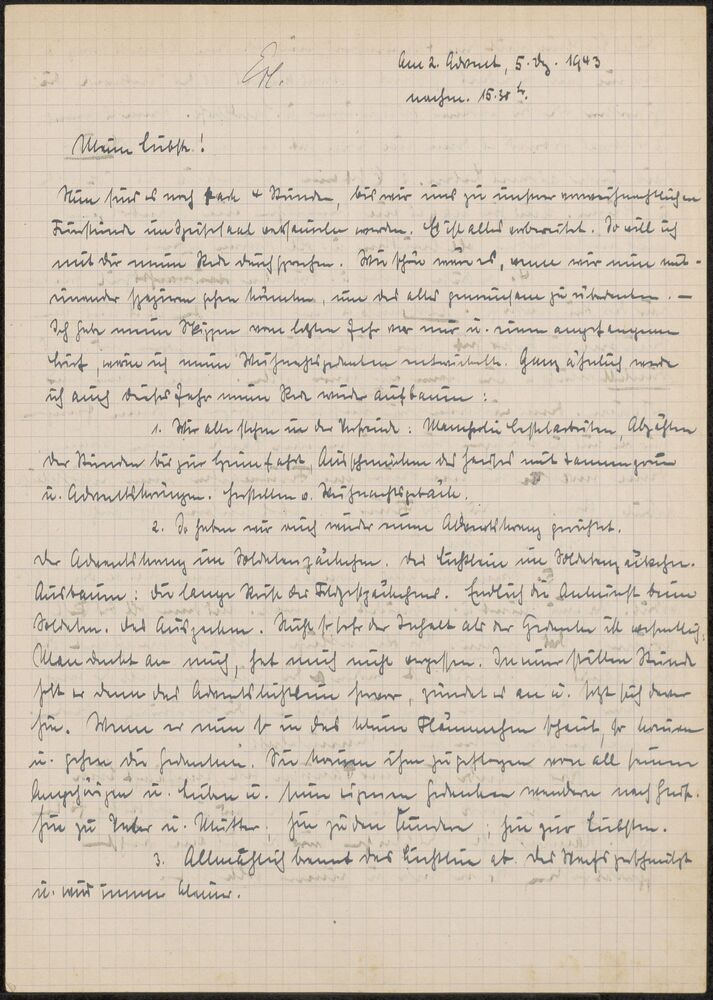 Erl.
Am 2. Advent, 5. Dez. 1943
nachm. 15.30 h.
Meine Liebste!
Nun sind es noch 4 Stunden, bis wir uns zu unserer vorweihnachtlichen
Feierstunde im Speisesaal versammeln werden. Es ist alles vorbereitet. So will ich
mit Dir meine Rede durchsprechen. Wie schön wäre es, wenn wir nun mit-
einander spazieren gehen könnten, um das alles gemeinsam zu überdenken. –
Ich habe meine Skizzen vom letzten Jahr vor mir u. einen angefangenen
Brief, worin ich meine Weihnachtsgedanken entwickelte. Ganz ähnlich werde
ich auch dieses Jahr meine Rede wieder aufbauen:
1. Wir alle stehen in der Vorfreude: Mancherlei Bastelarbeiten, Abzählen
der Stunden bis zur Heimfahrt, Ausschmücken des Hauses mit Tannengrün
u. Adventskränzen. Herstellen v. Weihnachtsgebäck.
2. So haben wir auch wieder einen Adventskranz gerichtet.
Der Adventskranz im Soldatenpäckchen. Das Lichtlein im Soldatenpäckchen.
Ausbauen: Die lange Reise des Feldpostpäckchens. Endlich die Ankunft beim
Soldaten. Das Auspacken. Nicht so sehr der Inhalt als der Gedanke ist wesentlich:
Man denkt an mich, hat mich nicht vergessen. In einer stillen Stunde
holt er dann das Adventslichtlein hervor, zündet es an u. setzt sich davor
hin. Wenn er nun so in das kleine Flämmchen schaut, so kommen
u. gehen die Gedanken. Sie kommen ihm zugeflogen von all seinen
Angehörigen u. Lieben u. seine eigenen Gedanken wandern nach Hause.
hin zu Vater u. Mutter, hin zu den Kindern, hin zur Liebsten.
3. Allmählich brennt das Lichtlein ab. Das Wachs schmilzt
u. wird immer kleiner.